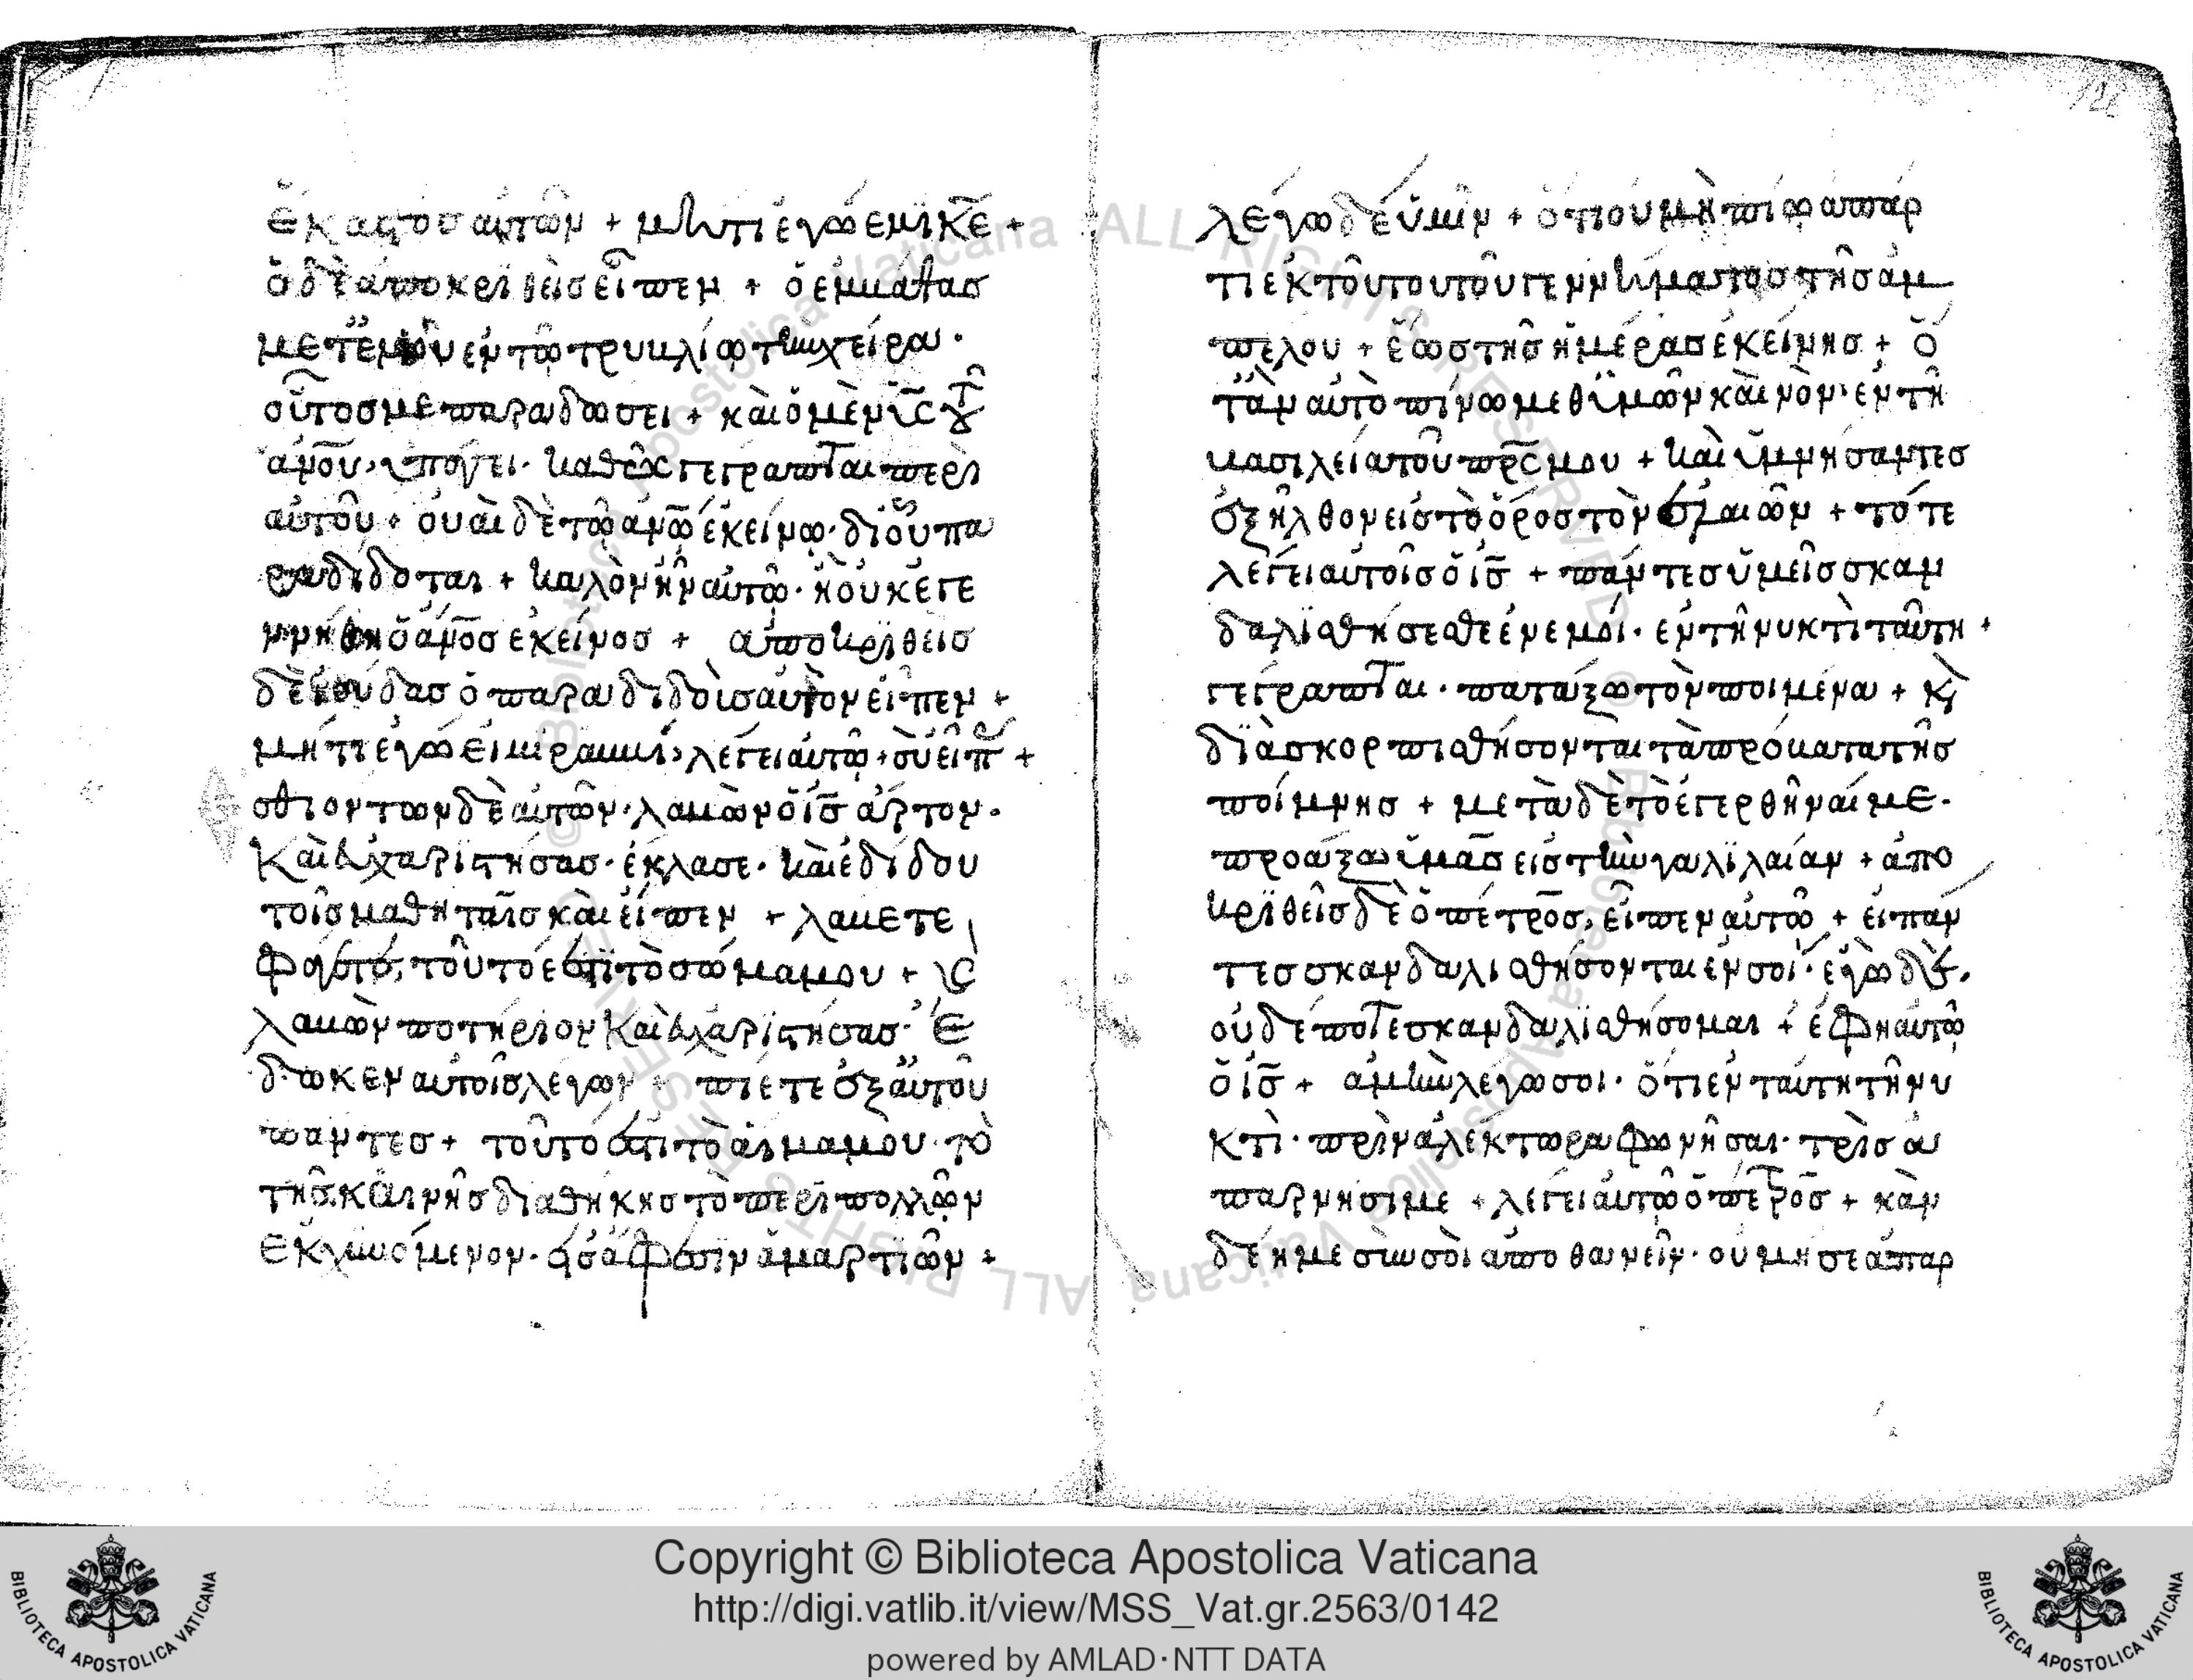 ἕκαστος αὐτῶν + μήτι ἐγώ εἰμι κ̅ε̅ +
ὁ δὲ ἀποκριθεὶς εἶπεν + ὁ ἐμβάψας
μετ ἐμοῦ ἐν τῶ τρυβλίω τὴν χεῖρα ·
οὗτος με παραδώσει + καὶ ὁ μὲν υ̅ς̅ τοῦ
α̅ν̅ο̅υ̅, ὑπάγει · καθὼς γέγραπται περὶ
αὐτοῦ + οὐαὶ δὲ τῶ α̅ν̅ω̅ ἐκείνω · δι οὗ πα
ραδίδοται + καλὸν ἦν αὐτῶ · ἢ οὐκ ἐγε
ννήθη ὁ α̅ν̅ο̅ς̅ ἐκεῖνος + ἀποκριθεὶς
δὲ ἰούδας ὁ παραδιδοὶς αὐτὸν εἶπεν +
μήτι ἐγώ εἰμι ραββί, λέγει αὐτῶ, σὺ εἶπ +
σθιόντων δὲ αὐτῶν · λαβὼν ὁ ι̅ς̅ ἄρτον ·
Καὶ εὐχαριστήσας · ἔκλασε · καὶ ἐδίδου
τοῖς μαθηταῖς καὶ εἶπεν + λάβετε
φάγετε, τοῦτό ἐστι τὸ σῶμα μου + κ
λαβὼν ποτήριον Καὶ εὐχαριστήσας · Ἔ
δωκεν αὐτοῖς λέγων + πίετε ἐξ αὐτοῦ
πάντες + τοῦτό ἐστι τὸ αἷμα μου · τὸ
τῆς καινῆς διαθήκης τὸ περὶ πολλῶν
Ἐκχυνόμενον · εἰς ἄφεσιν ἁμαρτιῶν +
λέγω δὲ ὑμῖν + ὅτι οὐ μὴ πίω ἀπάρ
τι ἐκ τούτου τοῦ γεννήματος τῆς ἀμ
πέλου + ἕως τῆς ἡμέρας ἐκείνης + ὅ
τὰν αὐτὸ πίνω μεθ ὑμῶν καὶνὸν · ἐν τῆ
βασιλεία τοῦ π̅ρ̅ς̅ μου + καὶ ὑμνήσαντες
ἐξῆλθον εἰς τὸ ὄρος τὸν ἐλαιῶν + τότε
λέγει αὐτοῖς ὁ ι̅ς̅ + πάντες ὑμεῖς σκαν
δαλισθήσεσθε ἐν ἐμοί · ἐν τῆ νυκτὶ ταύτη +
γέγραπται · πατάξω τὸν ποιμένα + κὶ
διασκορπισθήσονται τὰ πρόβατα τῆς
ποίμνης + μετὰ δὲ τὸ ἐγερθῆναί με ·
προάξω ὑμᾶς εἰς τὴν γαλιλαίαν + ἀπο
κριθεὶς δὲ ὁ πέτρος, εἶπεν αὐτῶ + εἰ πάν
τες σκανδαλισθήσονται ἐν σοί · ἐγὼ δὲ.
οὐδέποτε σκανδαλισθήσομαι + ἔφη αὐτῶ
ὁ ι̅ς̅ + ἀμὴν λέγω σοι · ὅτι ἐν ταύτη τῆ νυ
κτὶ · πρὶν ἀλέκτωρα φωνῆσαι · τρὶς ἀ
παρνήσι με + λέγει αὐτῶ ὁ πέτρος + κὰν
δέη με σὺν σοὶ ἀποθανεῖν · οὐ μή σε ἀπαρ
Copyright © Biblioteca Apostolica Vaticana
http://digi.vatlib.it/view/MSS_Vat.gr.2563/0142
powered by AMLAD·NTT DATA
BIBLIOTECA APOSTOLICA VATICANA
BIBLIOTECA APOSTOLICA VATICANA